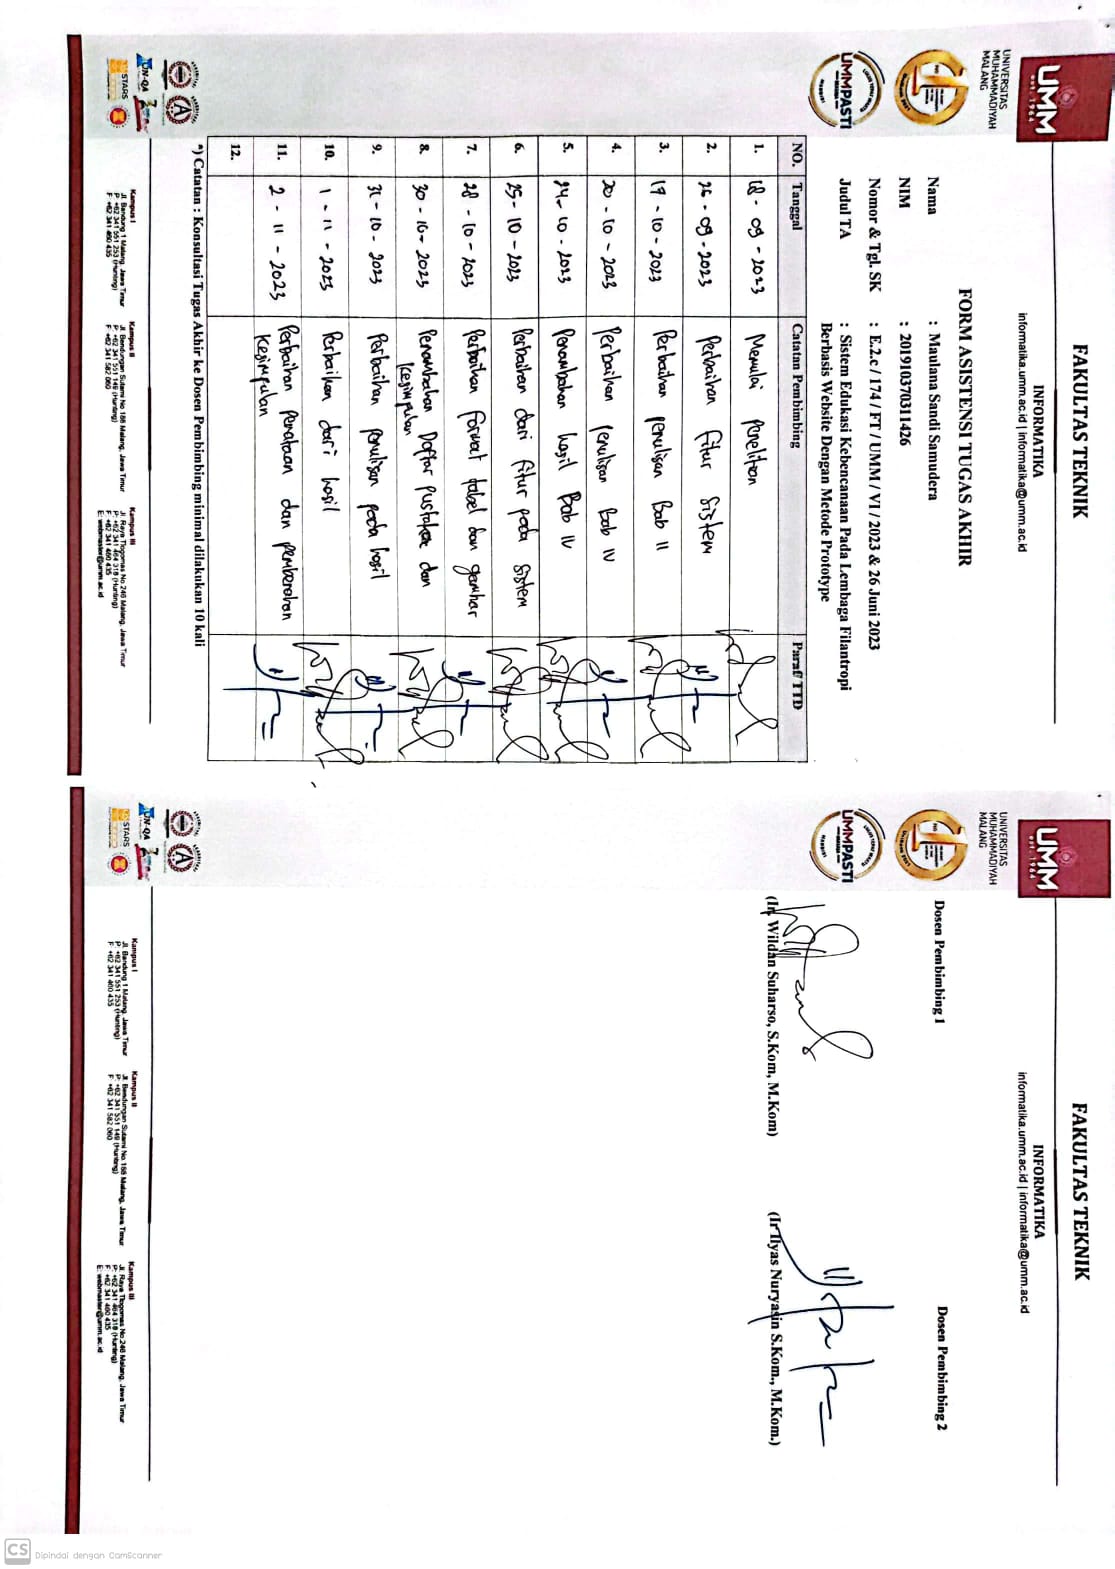 UMM
est. 1964
UNIVERSITAS
MUHAMMADIYAH
MALANG
UMMPASTI
FAKULTAS TEKNIK
INFORMATIKA
informatika.umm.ac.id | informatika@umm.ac.id
FORM ASISTENSI TUGAS AKHIR
Nama : Maulana Sandi Samudera
NIM : 201910370311426
Nomor & Tgl. SK : E.2.c / 174 / FT / UMM / VI / 2023 & 26 Juni 2023
Judul TA : Sistem Edukasi Kebencanaan Pada Lembaga Filantropi
Berbasis Website Dengan Metode Prototype
NO. Tanggal Catatan Pembimbing Paraf TTD
1. 18 - 09 - 2023 Memulai penelitian
2. 26 - 09 - 2023 Perbaikan fitur sistem
3. 17 - 10 - 2023 Perbaikan penulisan Bab II
4. 20 - 10 - 2023 Perbaikan penulisan Bab IV
5. 24 - 10 - 2023 Penambahan hasil Bab IV
6. 25 - 10 - 2023 Perbaikan dari fitur pada sistem
7. 28 - 10 - 2023 Perbaikan format tabel dan gambar
8. 30 - 10 - 2023 Penambahan Daftar pustaka dan
kesimpulan
9. 31 - 10 - 2023 Perbaikan penulisan pada hasil
10. 1 - 11 - 2023 Perbaikan dari hasil
11. 2 - 11 - 2023 Perbaikan penataan dan pembenahan
kesimpulan
12.
*) Catatan : Konsultasi Tugas Akhir ke Dosen Pembimbing minimal dilakukan 10 kali
UN-QA
STARS
Kampus I
Jl. Bandung 1 Malang, Jawa Timur
P: +62 341 551 253 (Hunting)
F: +62 341 460 435
Kampus II
Jl. Bendungan Sutami No 188 Malang, Jawa Timur
P: +62 341 551 149 (Hunting)
F: +62 341 582 060
Kampus III
Jl. Raya Tlogomas No 246 Malang, Jawa Timur
P: +62 341 464 318 (Hunting)
F: +62 341 460 435
E: webmaster@umm.ac.id
UMM
est. 1964
UNIVERSITAS
MUHAMMADIYAH
MALANG
UMMPASTI
FAKULTAS TEKNIK
INFORMATIKA
informatika.umm.ac.id | informatika@umm.ac.id
Dosen Pembimbing 1 Dosen Pembimbing 2
(Ir. Wildan Suharso, S.Kom, M.Kom) (Ir Ilyas Nuryasin S.Kom., M.Kom.)
UN-QA
STARS
Kampus I
Jl. Bandung 1 Malang, Jawa Timur
P: +62 341 551 253 (Hunting)
F: +62 341 460 435
Kampus II
Jl. Bendungan Sutami No 188 Malang, Jawa Timur
P: +62 341 551 149 (Hunting)
F: +62 341 582 060
Kampus III
Jl. Raya Tlogomas No 246 Malang, Jawa Timur
P: +62 341 464 318 (Hunting)
F: +62 341 460 435
E: webmaster@umm.ac.id
CS Dipindai dengan CamScanner